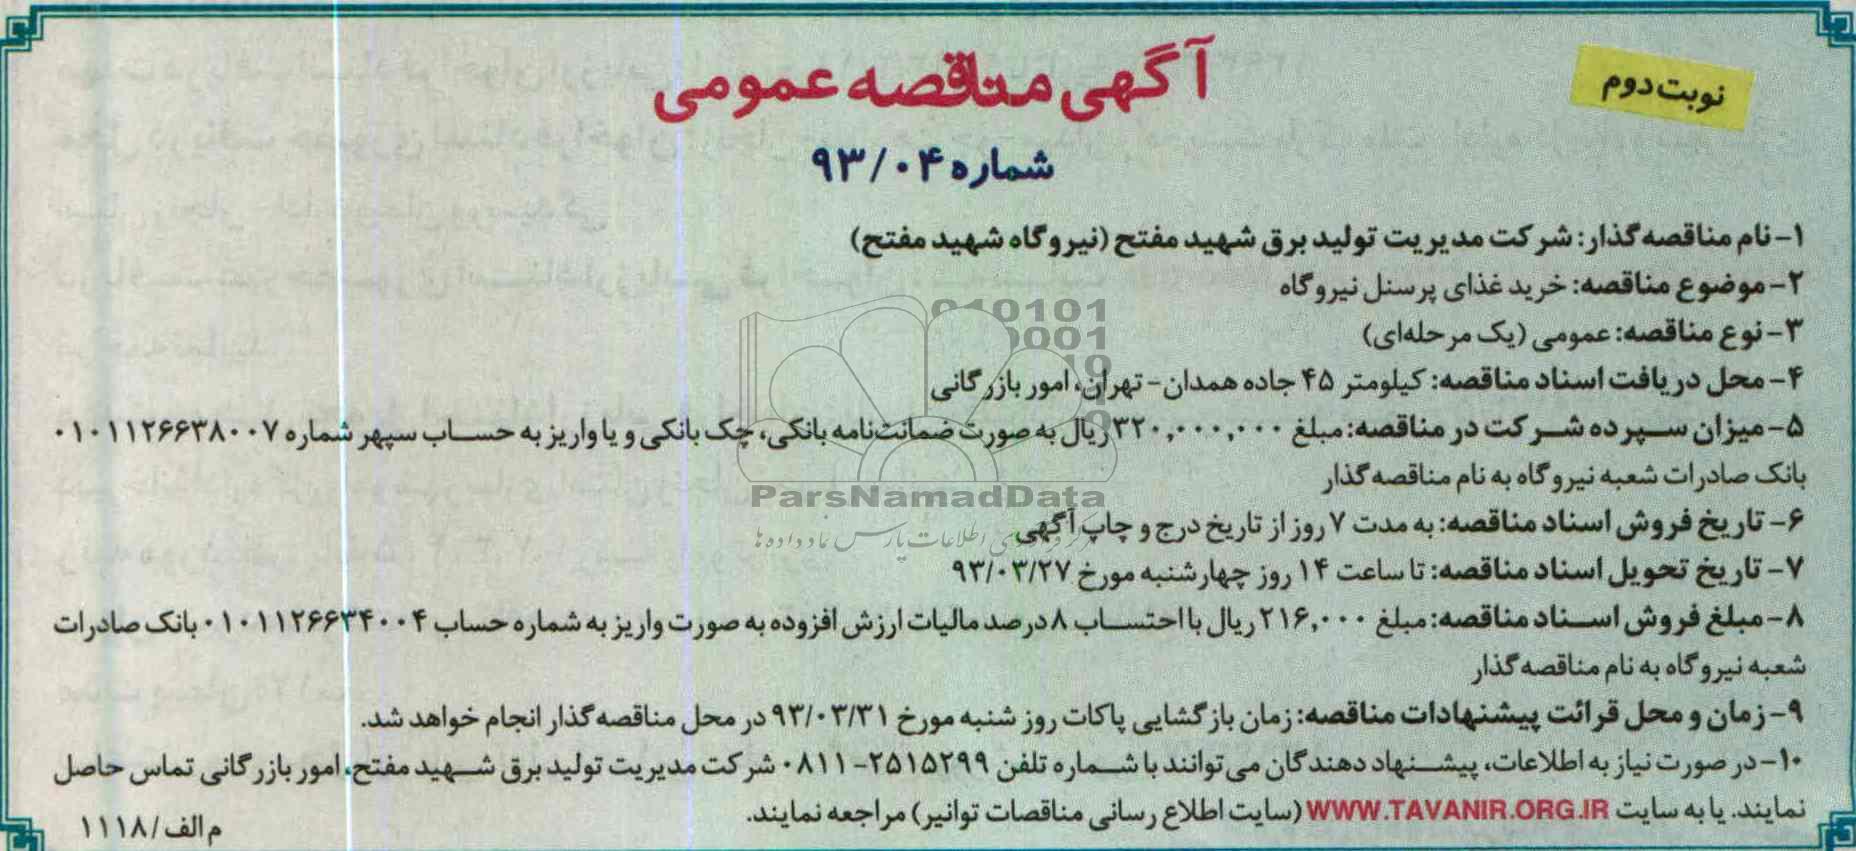 نوبت دوم
آگهی مناقصه عمومی
شماره ۹۳/۰۴
۱- نام مناقصه گذار: شرکت مدیریت تولید برق شهید مفتح (نیروگاه شهید مفتح)
۲- موضوع مناقصه: خرید غذای پرسنل نیروگاه
۳- نوع مناقصه: عمومی (یک مرحله‌ای)
۴- محل دریافت اسناد مناقصه: کیلومتر ۴۵ جاده همدان - تهران، امور بازرگانی
۵- میزان سپرده شرکت در مناقصه: مبلغ ۳۲۰,۰۰۰,۰۰۰ ریال به صورت ضمانت‌نامه بانکی، چک بانکی و یا واریز به حساب سپهر شماره ۰۱۰۱۱۲۶۶۳۸۰۰۷
بانک صادرات شعبه نیروگاه به نام مناقصه گذار
۶- تاریخ فروش اسناد مناقصه: به مدت ۷ روز از تاریخ درج و چاپ آگهی
۷- تاریخ تحویل اسناد مناقصه: تا ساعت ۱۴ روز چهارشنبه مورخ ۹۳/۰۳/۲۷
۸- مبلغ فروش اسناد مناقصه: مبلغ ۲۱۶,۰۰۰ ریال با احتساب ۸ درصد مالیات ارزش افزوده به صورت واریز به شماره حساب ۰۱۰۱۱۲۶۶۳۴۰۰۴ بانک صادرات
شعبه نیروگاه به نام مناقصه گذار
۹- زمان و محل قرائت پیشنهادات مناقصه: زمان بازگشایی پاکات روز شنبه مورخ ۹۳/۰۳/۳۱ در محل مناقصه گذار انجام خواهد شد.
۱۰- در صورت نیاز به اطلاعات، پیشنهاد دهندگان می‌توانند با شماره تلفن ۲۵۱۵۲۹۹-۰۸۱۱ شرکت مدیریت تولید برق شهید مفتح، امور بازرگانی تماس حاصل
نمایند. یا به سایت WWW.TAVANIR.ORG.IR (سایت اطلاع رسانی مناقصات توانیر) مراجعه نمایند.
م الف/۱۱۱۸
ParsNamadData